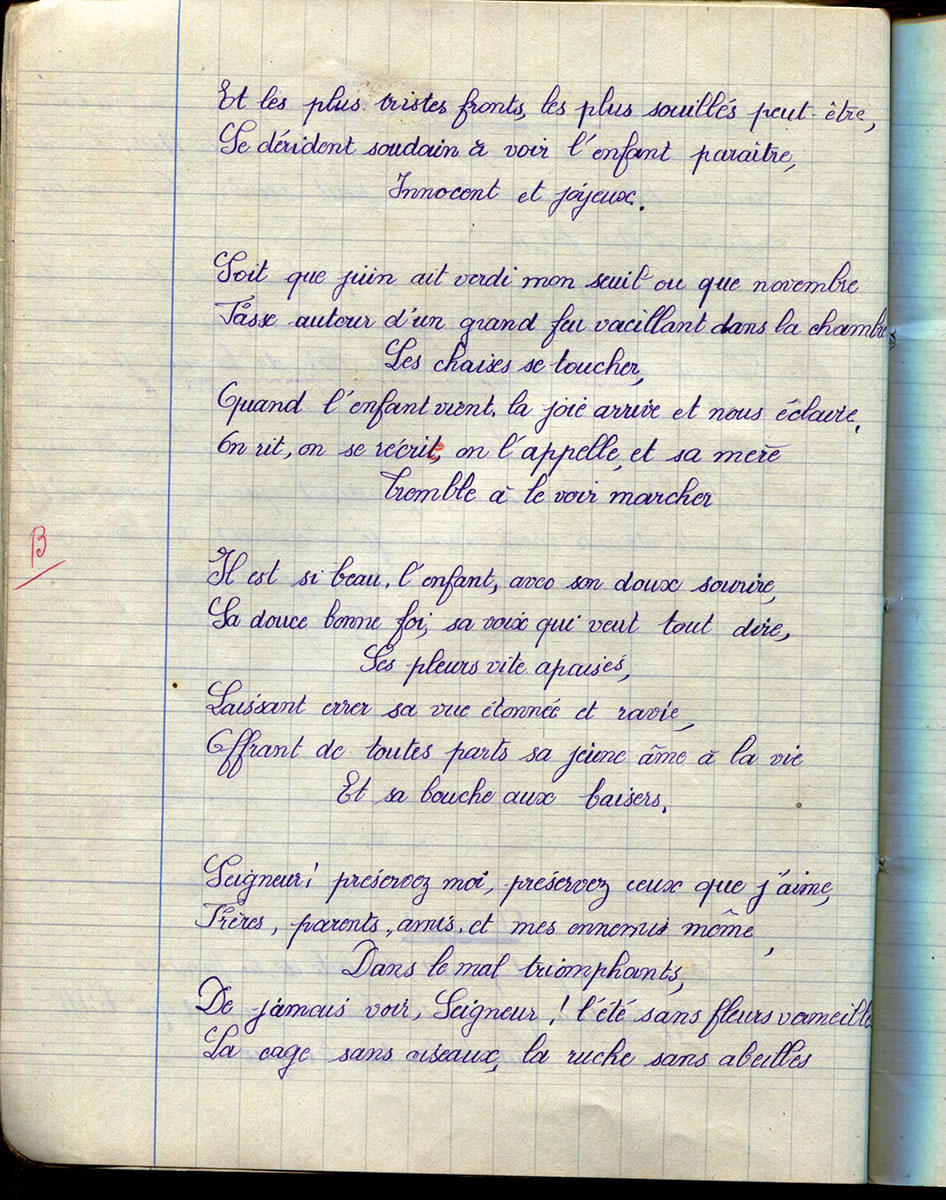 Et les plus tristes fronts, les plus souillés peut-être,
Se dérident soudain à voir l'enfant paraitre,
Innocent et joyeux.
Soit que juin ait verdi mon seuil ou que novembre
Fasse autour d'un grand feu vacillant dans la chambre
Les chaises se toucher,
Quand l'enfant vient, la joie arrive et nous éclaire.
On rit, on se récrie, on l'appelle, et sa mère
Tremble à le voir marcher
B
Il est si beau, l'enfant, avec son doux sourire,
Sa douce bonne foi, sa voix qui veut tout dire,
Ses pleurs vite apaisés,
Laissant errer sa vue étonnée et ravie,
Offrant de toutes parts sa jeune âme à la vie
Et sa bouche aux baisers.
Seigneur! préservez moi, préservez ceux que j'aime,
Frères, parents, amis, et mes ennemis même,
Dans le mal triomphants,
De jamais voir, Seigneur! l'été sans fleurs vermeille
La cage sans oiseaux, la ruche sans abeilles